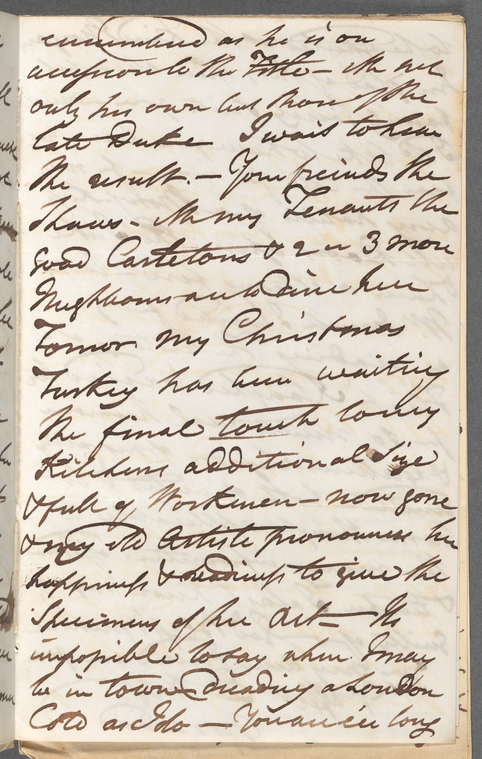 encumbered as he is on
accession to the Title - with not
only his own but those of the
late Duke I wait to hear
the result. - Your freinds the
Shaws - with my Tenants the
good Castletons & 2 or 3 more
Neighbours are to dine here
Tomor my Christmas
Turkey has been waiting
the final touch to my
Kitchens additional Size
& full of Workmen - now gone
& my old Artiste pronounces her
happiness & readiness to give the
Specimens of her Art - Its
impossible to say when I may
be in town dreading a London
Cold as I do - You are in long